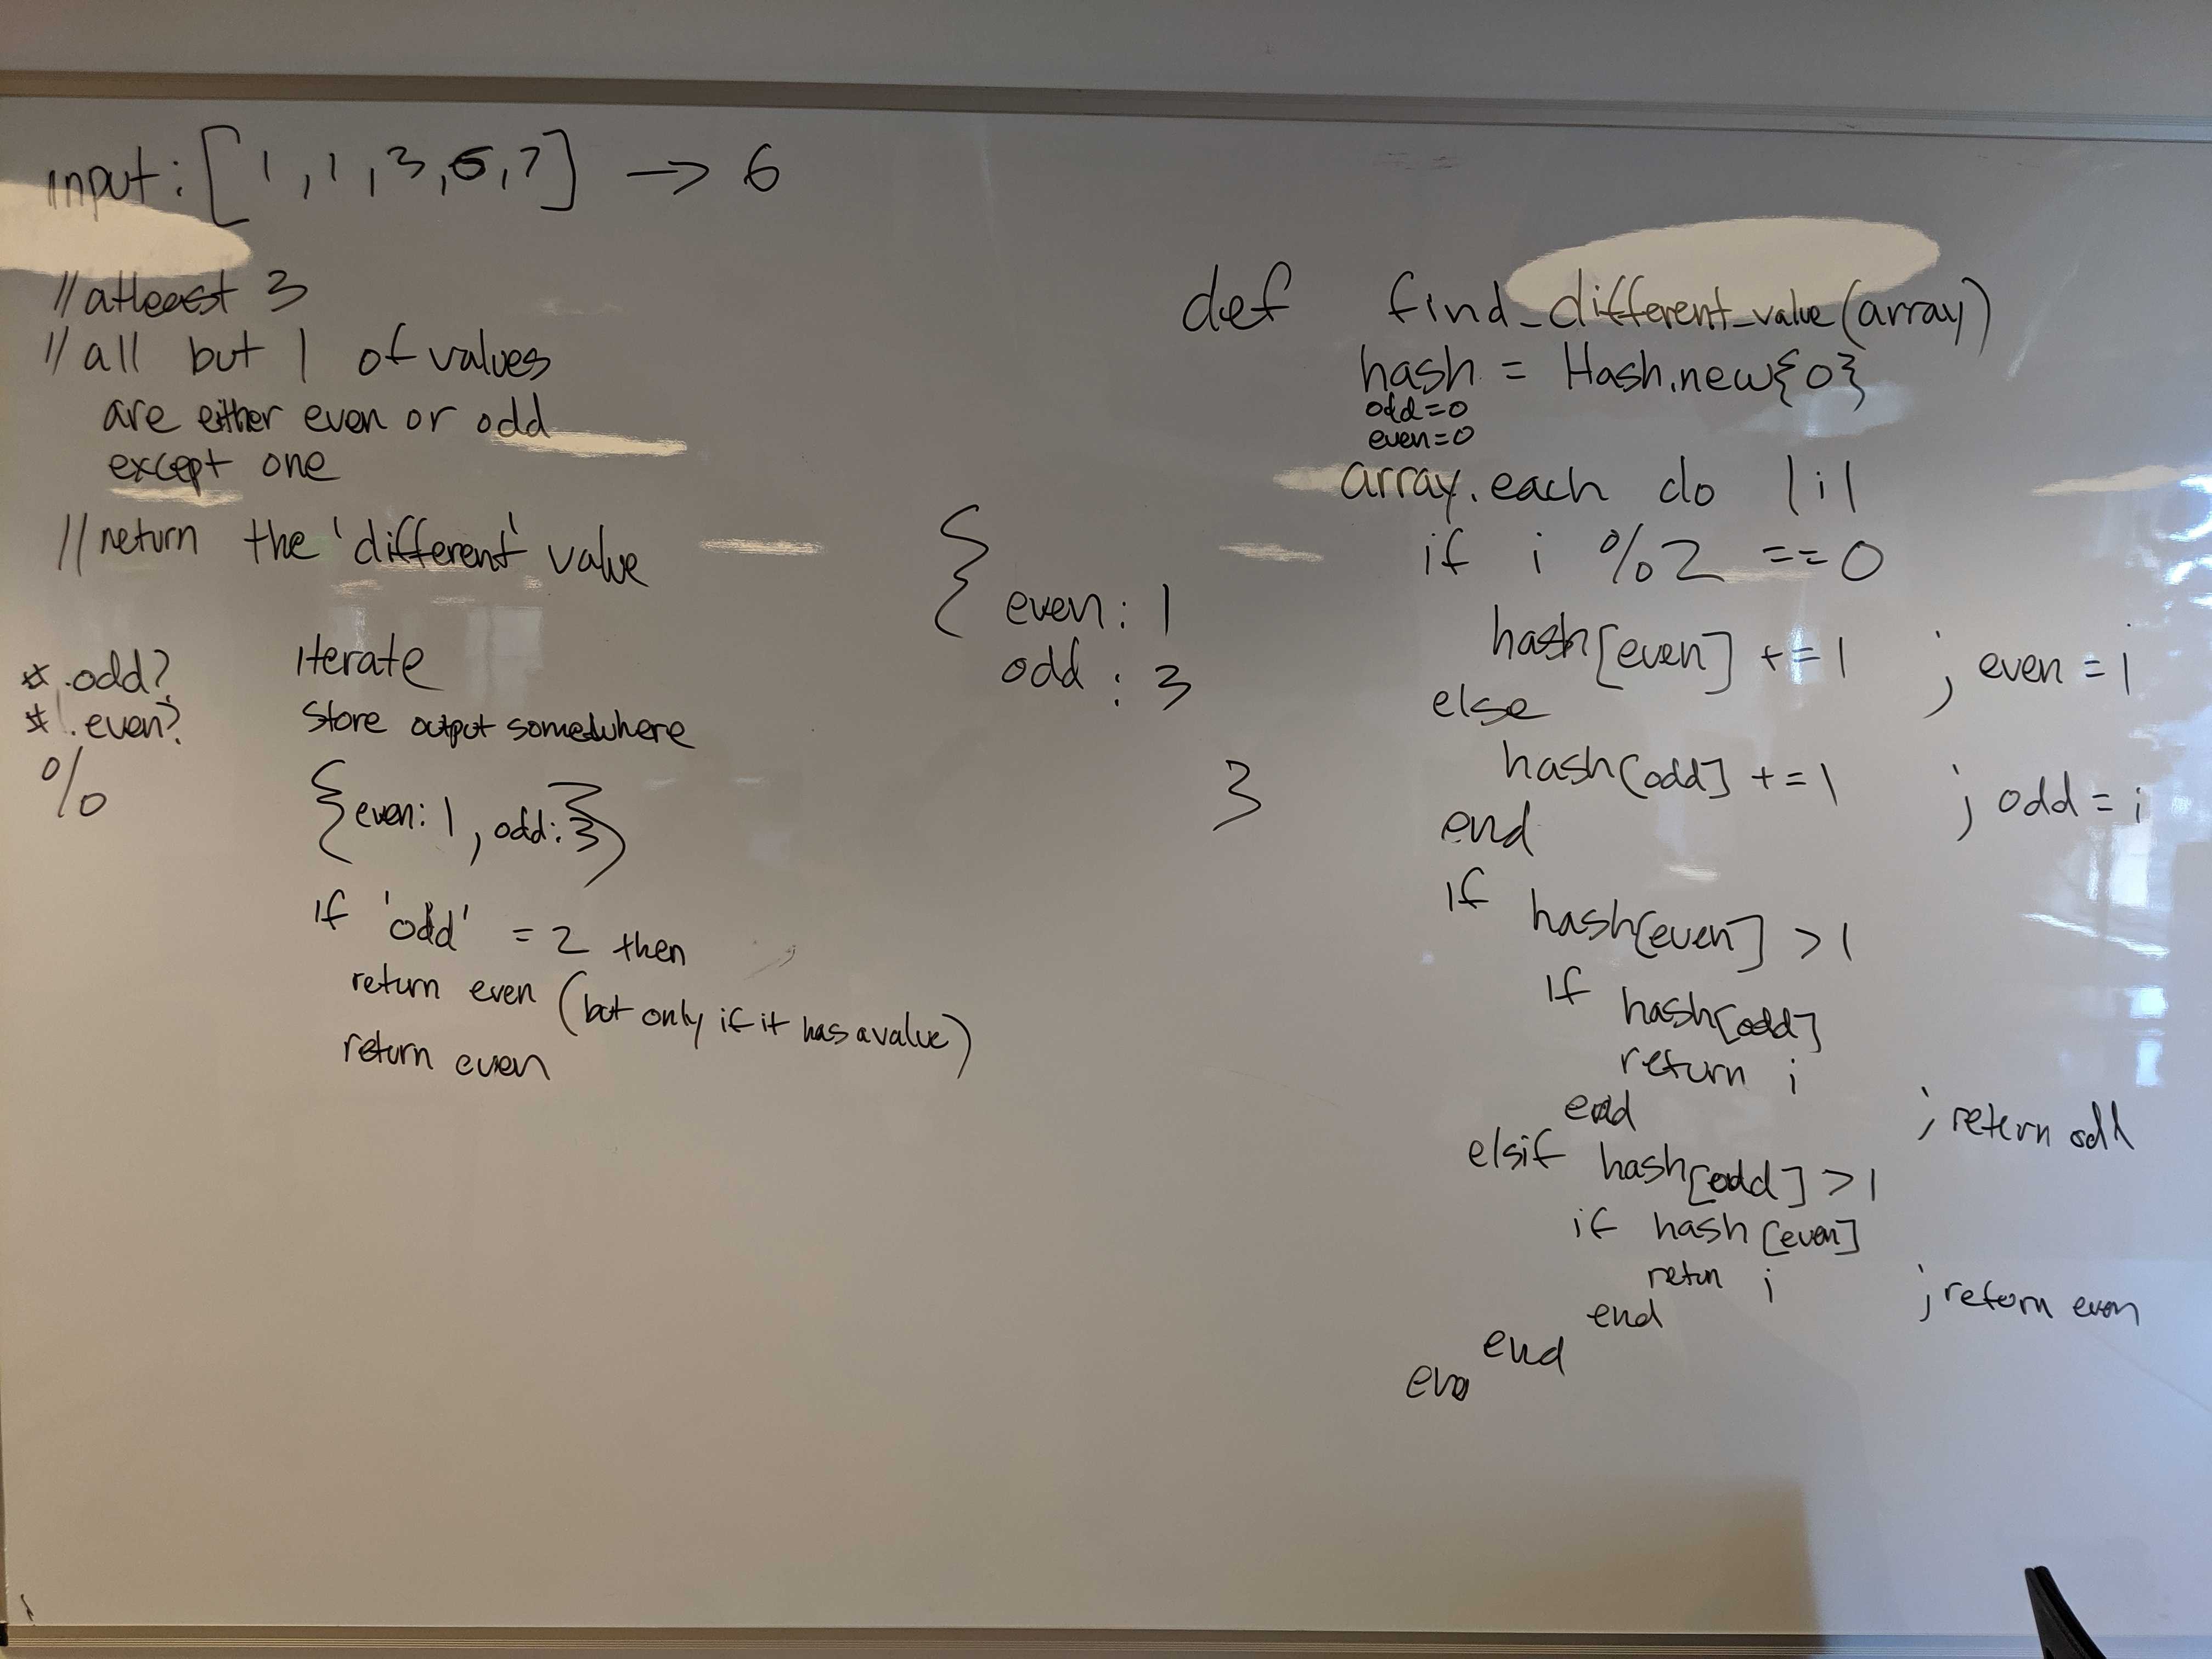 input: [1, 1, 3, 6, 7] → 6
// atleast 3
// all but 1 of values
are either even or odd
except one
// return the 'different' value
#.odd?
#.even?
%
iterate
store output somewhere
{even: 1, odd: 3}
if 'odd' = 2 then
return even (but only if it has a value)
return even
{
even: 1
odd: 3
}
def find_different_value(array)
hash = Hash.new{0}
odd=0
even=0
array.each do |i|
if i %2 ==0
hash[even] +=1 ; even = i
else
hash[odd] +=1 ; odd = i
end
if hash[even] >1
if hash[odd]
return i
end ; return odd
elsif hash[odd] >1
if hash[even]
retun i ; return even
end
end
end